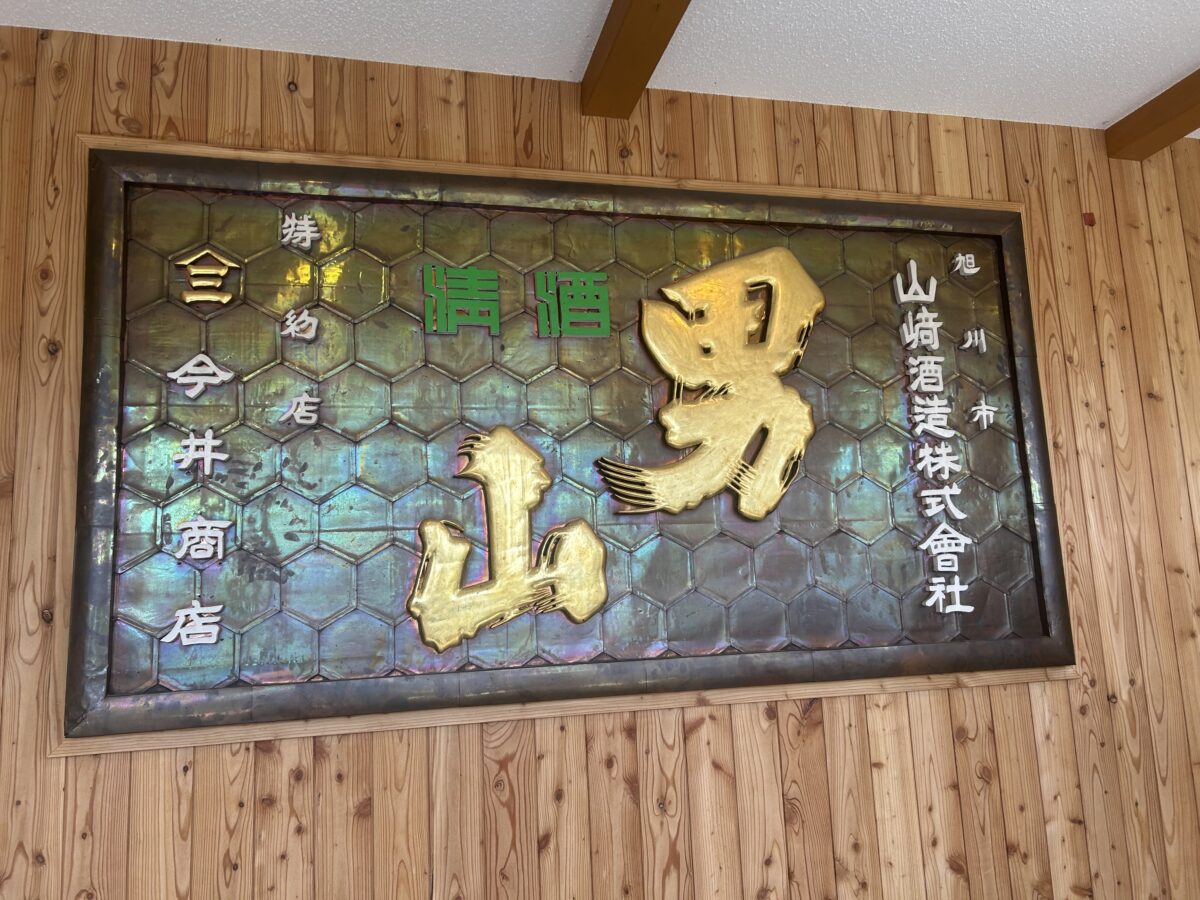 旭川市
山﨑酒造株式會社
男山
清酒
特約店
今井商店